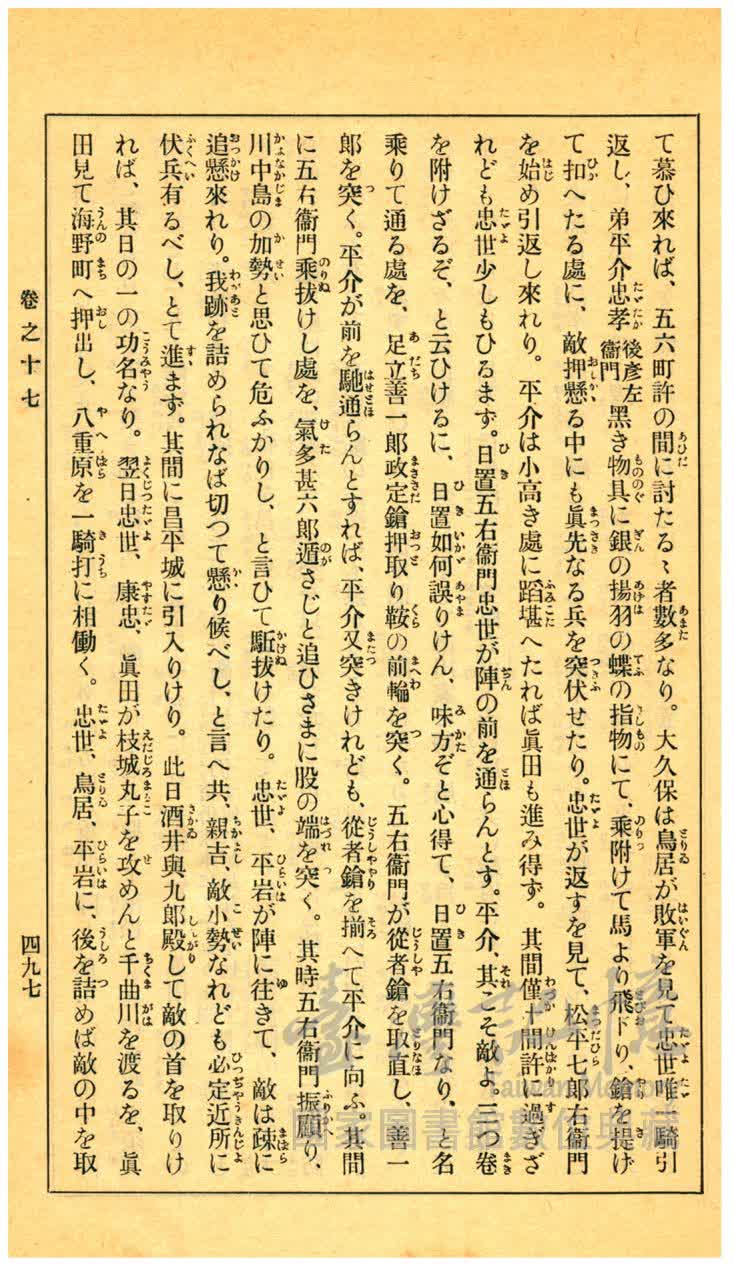 て慕ひ來れば、五六町許の間に討たるゝ者數多なり。大久保は鳥居が敗軍を見て忠世唯一騎引
返し、弟平介忠孝後彥左衞門黑き物具に銀の揚羽の蝶の指物にて、乘附けて馬より飛下り、鎗を提げ
て扣へたる處に、敵押懸る中にも眞先なる兵を突伏せたり。忠世が返すを見て、松平七郎右衞門
を始め引返し來れり。平介は小高き處に蹈堪へたれば眞田も進み得ず。其間僅十間許に過ぎざ
れども忠世少しもひるまず。日置五右衞門忠世が陣の前を通らんとす。平介、其こそ敵よ。三つ卷
を附けざるぞ、と云ひけるに、日置如何誤りけん、味方ぞと心得て、日置五右衞門なり、と名
乘りて通る處を、足立善一郎政定鎗押取り鞍の前輪を突く。五右衞門が從者鎗を取直し、善一
郎を突く。平介が前を馳通らんとすれば、平介又突きけれども、從者鎗を揃へて平介に向ふ。其間
に五右衞門乘拔けし處を、氣多甚六郎遁さじと追ひさまに股の端を突く。其時五右衞門振顧り、
川中島の加勢と思ひて危ふかりし、と言ひて駈拔けたり。忠世、平岩が陣に往きて、敵は疎に
追懸來れり。我跡を詰められなば切つて懸り候べし、と言へ共、親吉、敵小勢なれども必定近所に
伏兵有るべし、とて進まず。其間に昌平城に引入りけり。此日酒井與九郎殿して敵の首を取りけ
れば、其日の一の功名なり。翌日忠世、康忠、眞田が枝城丸子を攻めんと千曲川を渡るを、眞
田見て海野町へ押出し、八重原を一騎打に相働く。忠世、鳥居、平岩に、後を詰めば敵の中を取
卷之十七
四九七
臺灣記憶
Taiwan Memory
國家圖書館數位典藏